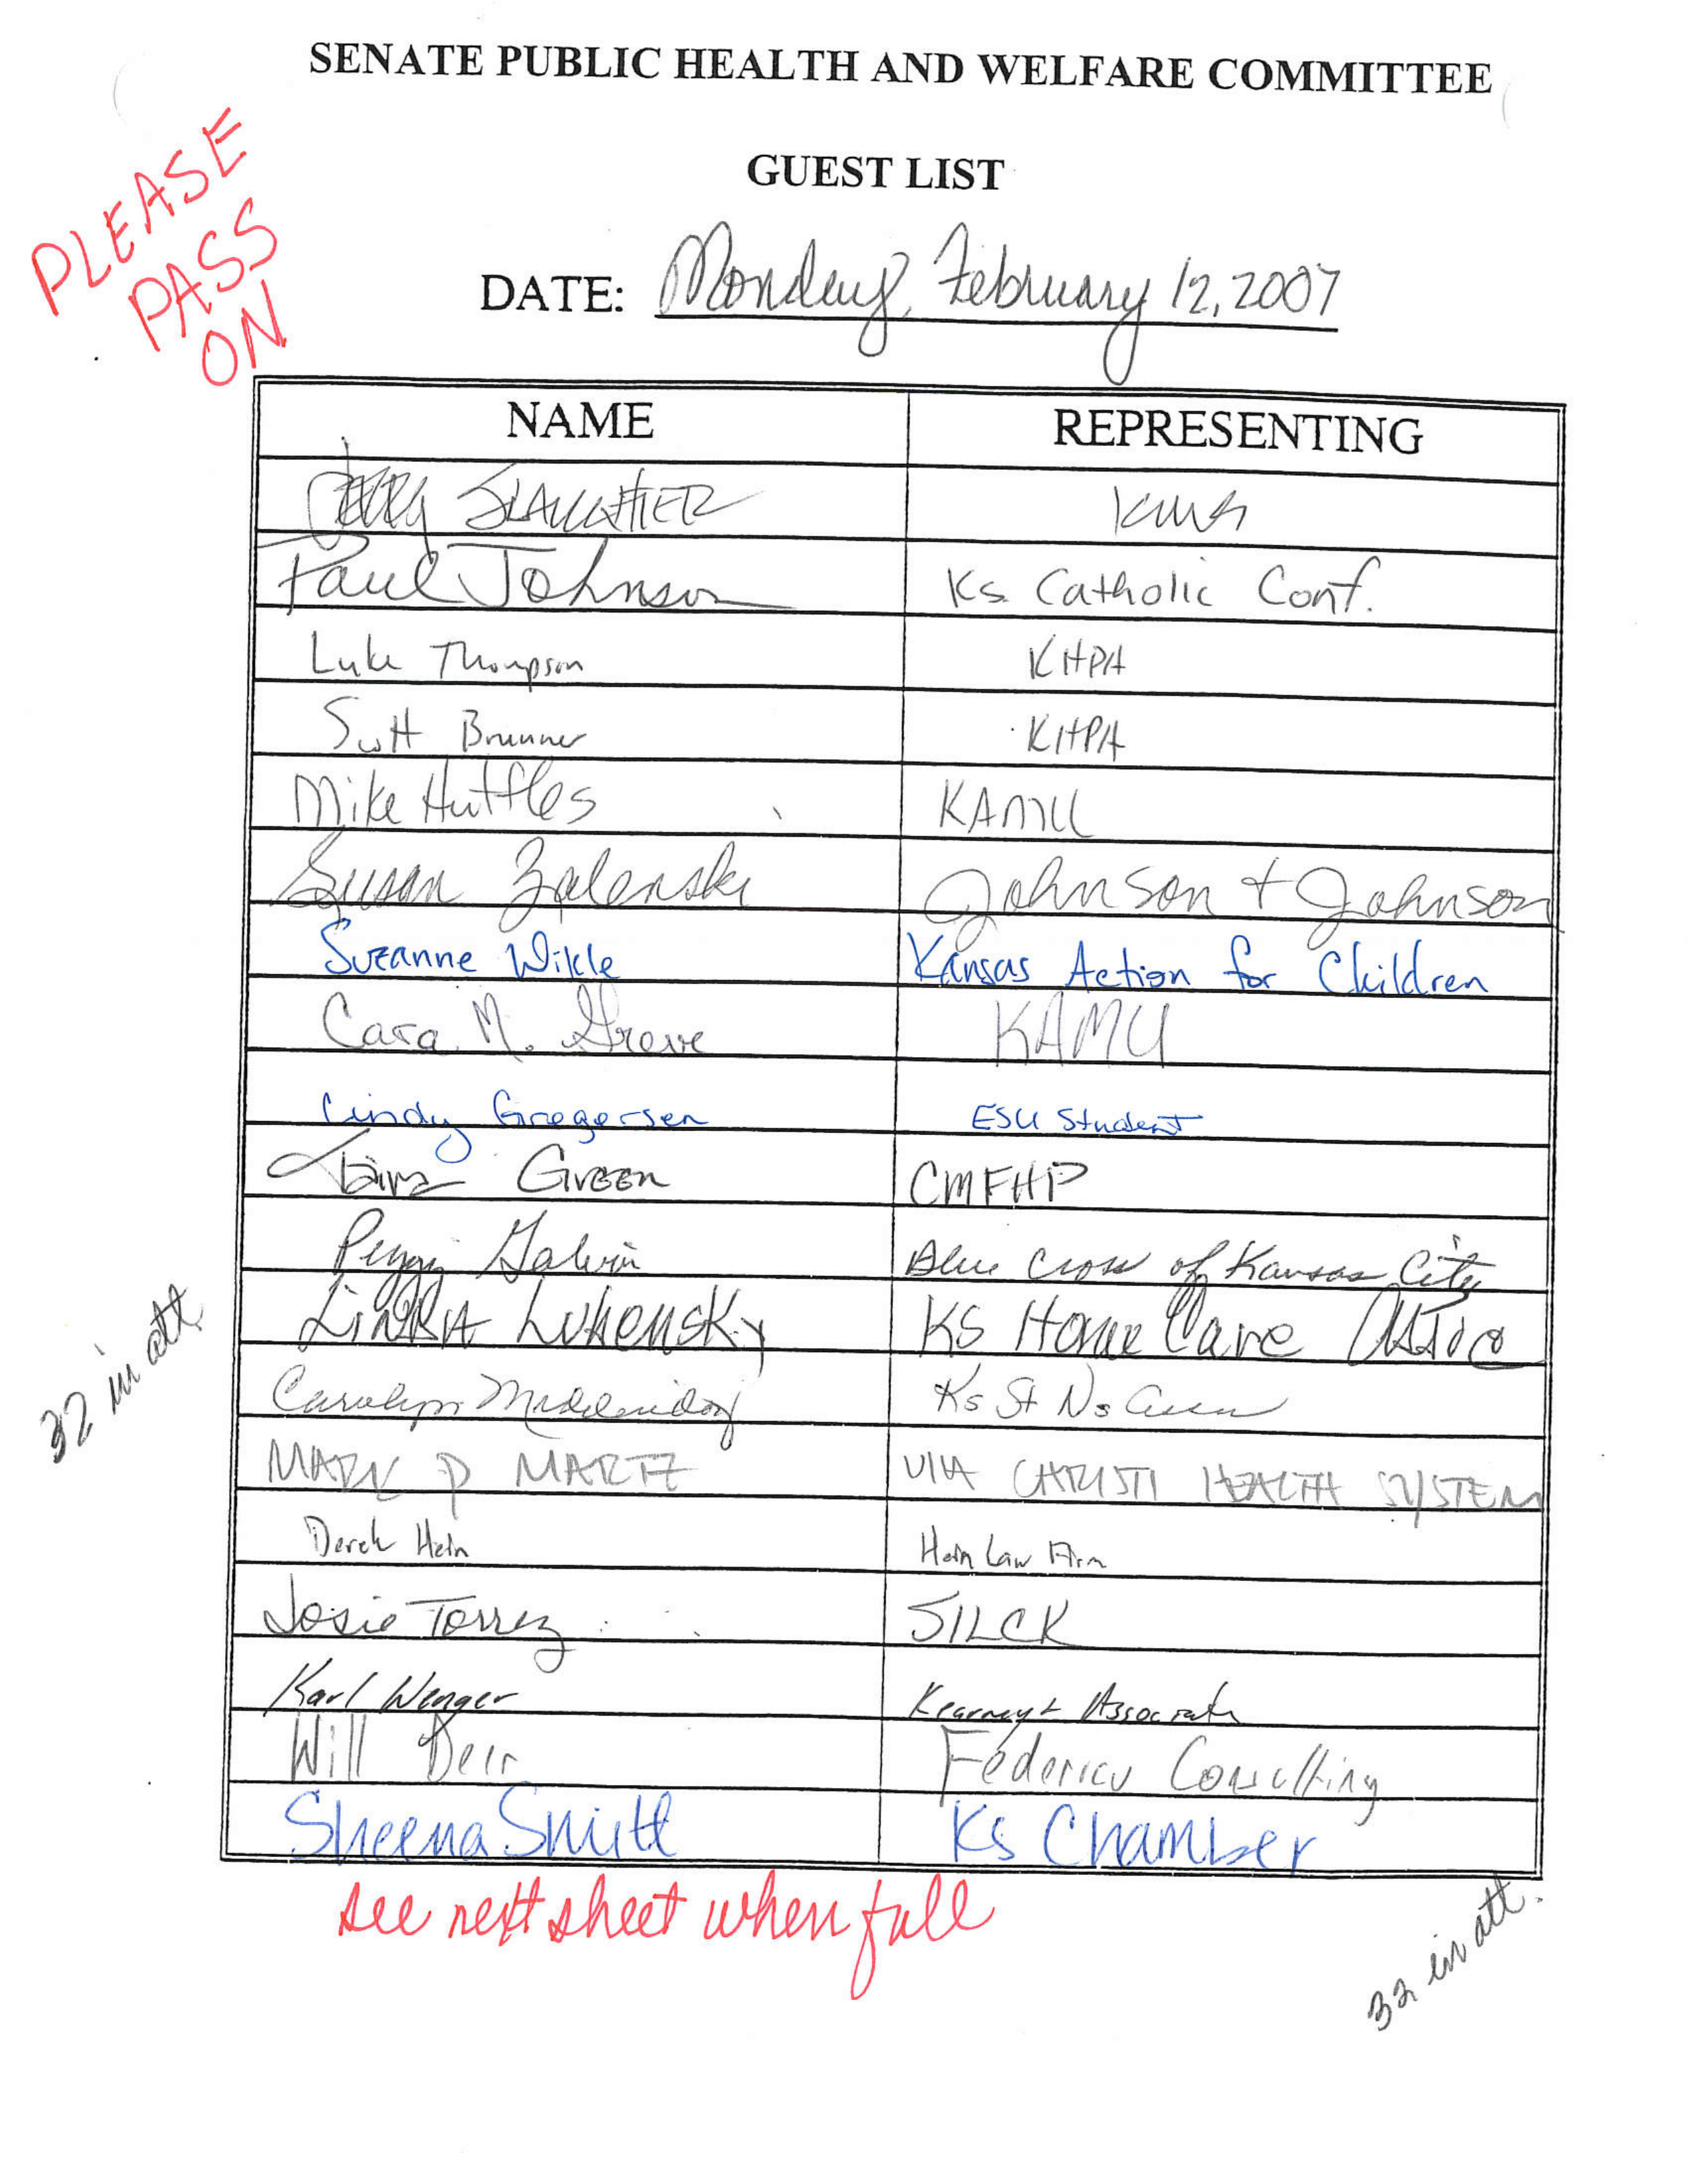 SENATE PUBLIC HEALTH AND WELFARE COMMITTEE
PLEASE
PASS
ON
GUEST LIST
DATE: Monday, February 12, 2007
NAME REPRESENTING
Jerry SLAUGHTER KMS
Paul Johnson Ks. Catholic Conf.
Luke Thompson KHPA
Scott Brunner KHPA
Mike Huttles KAMU
Susan Zalenski Johnson + Johnson
Suzanne Wikle Kansas Action for Children
Cara M. Greve KAMU
Cindy Gregersen ESU Student
Green CMFHP
Peggy Galvin Blue Cross of Kansas City
LINDA Lubensky KS Home Care Assoc
Carolyn Middendorf Ks St Ns Assn
MARK P MARTZ VIA CHRISTI HEALTH SYSTEM
Derek Hein Hein Law Firm
Josie Torrez SILCK
Karl Wenger Kearney & Associates
Will Deer Federico Consulting
Sheena Smith Ks Chamber
32 in att.
see next sheet when full
32 in att.